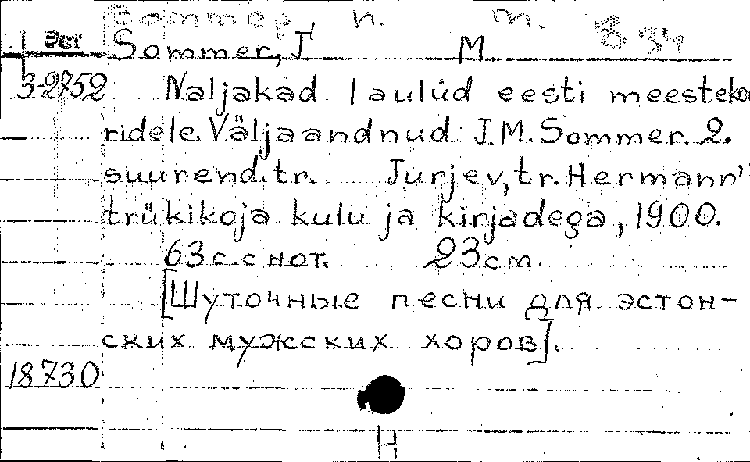 Sommer, n. m. 834
Эст Sommer, J M
3-2752 Naljakad laulud eesti meesteko
ridele. Väljaandnud J.M. Sommer. 2.
suurend. tr. Jurjev, tr. Hermann'
trükikoja kulu ja kirjadega, 1900.
63 с. с нот. 23 cm.
[Шуточные песни для эстон-
ских мужских хоров].
18730
Н